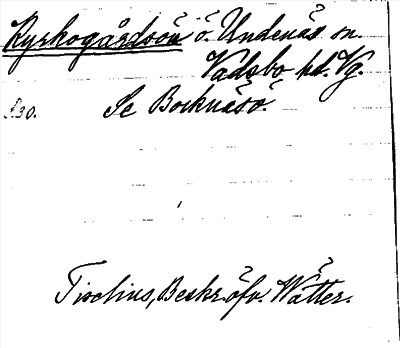 Kyrkogårdsön ö. Undenäs sn.
Vadsbo hd. Vg.
S30. Se Bocknäsö.
Tiselius, Beskr. öfv. Wätter.